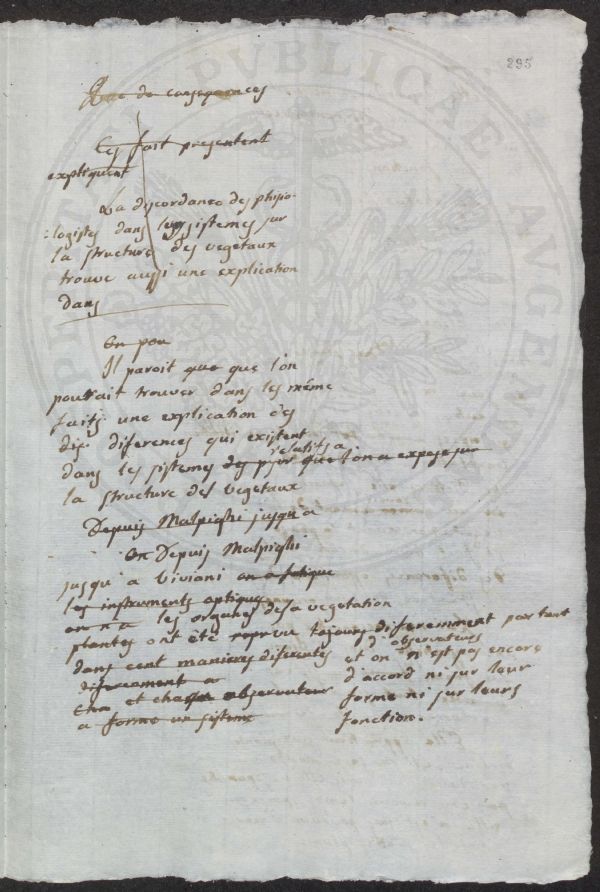 295
de consequences
Ces fait presentent
expliquent
La discordance des phisio-
logistes dans les sistemes sur
la structure des vegetaux
trouve aussi une explication
dans
On pou
Il paroit que que l'on
pourrait trouver dans les même
faits une explication des
dif. diferences qui existent
dans les sistemes des relatifs a que l'on a exposé sur
la structure des vegetaux
Depuis Malpighi jusqu'a
On Depuis Malpighi
jusqu'a Viviani on a
les instruments optiques
on n'a les organes de la vegetation
plantes ont été toujours diferemment par tant
dans cent manieres diferentes
diferement a
et chaque observateur
a forme un sisteme
d'observateurs
et on n'est pas encore
d'accord ni sur leur
forme ni sur leurs
fonction.